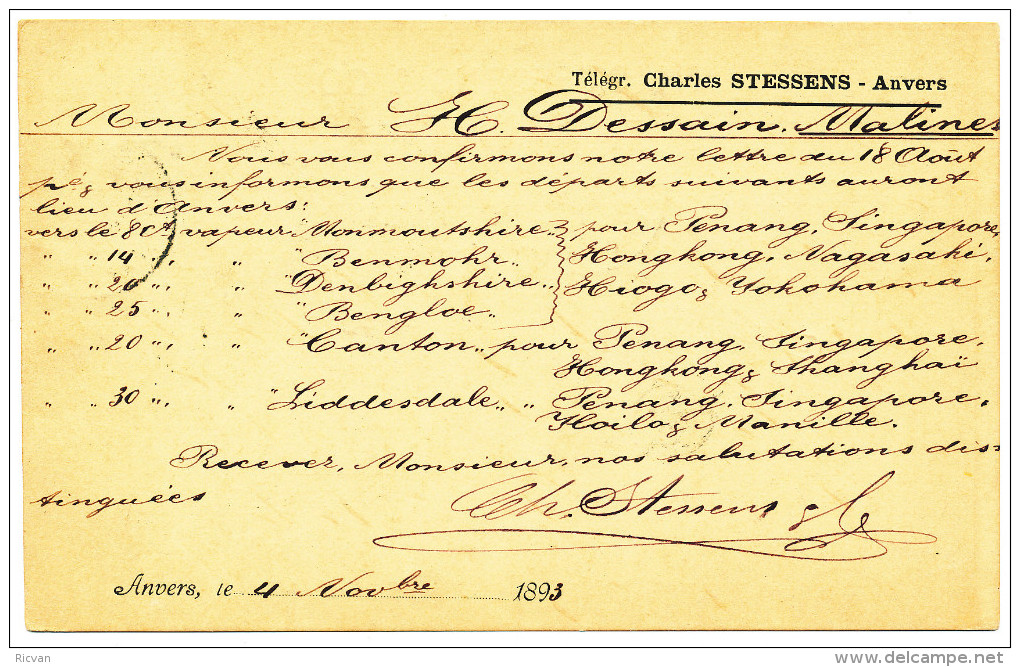 Télégr. Charles STESSENS - Anvers
Monsieur H. Dessain. Malines
Nous vous confirmons notre lettre du 18 Août
pé & vous informons que les départs suivants auront
lieu d'Anvers:
vers le 8 Ct vapeur "Monmoutshire" pour Penang, Singapore,
" " 14 ", " "Benmohr" Hongkong, Nagasaki,
" " 20 ", " "Denbighshire" Hiogo & Yokohama
" " 25 ", " "Bengloe"
" " 20 ", " "Canton" pour Penang, Singapore,
Hongkong & Shanghaï
" " 30 ", " "Liddesdale" " Penang, Singapore,
Iloilo & Manille.
Recever, Monsieur, nos salutations dis=
tinguées
Ch. Stessens & Co
Anvers, le 4 Novbre 1893
Ricvan
www.delcampe.net